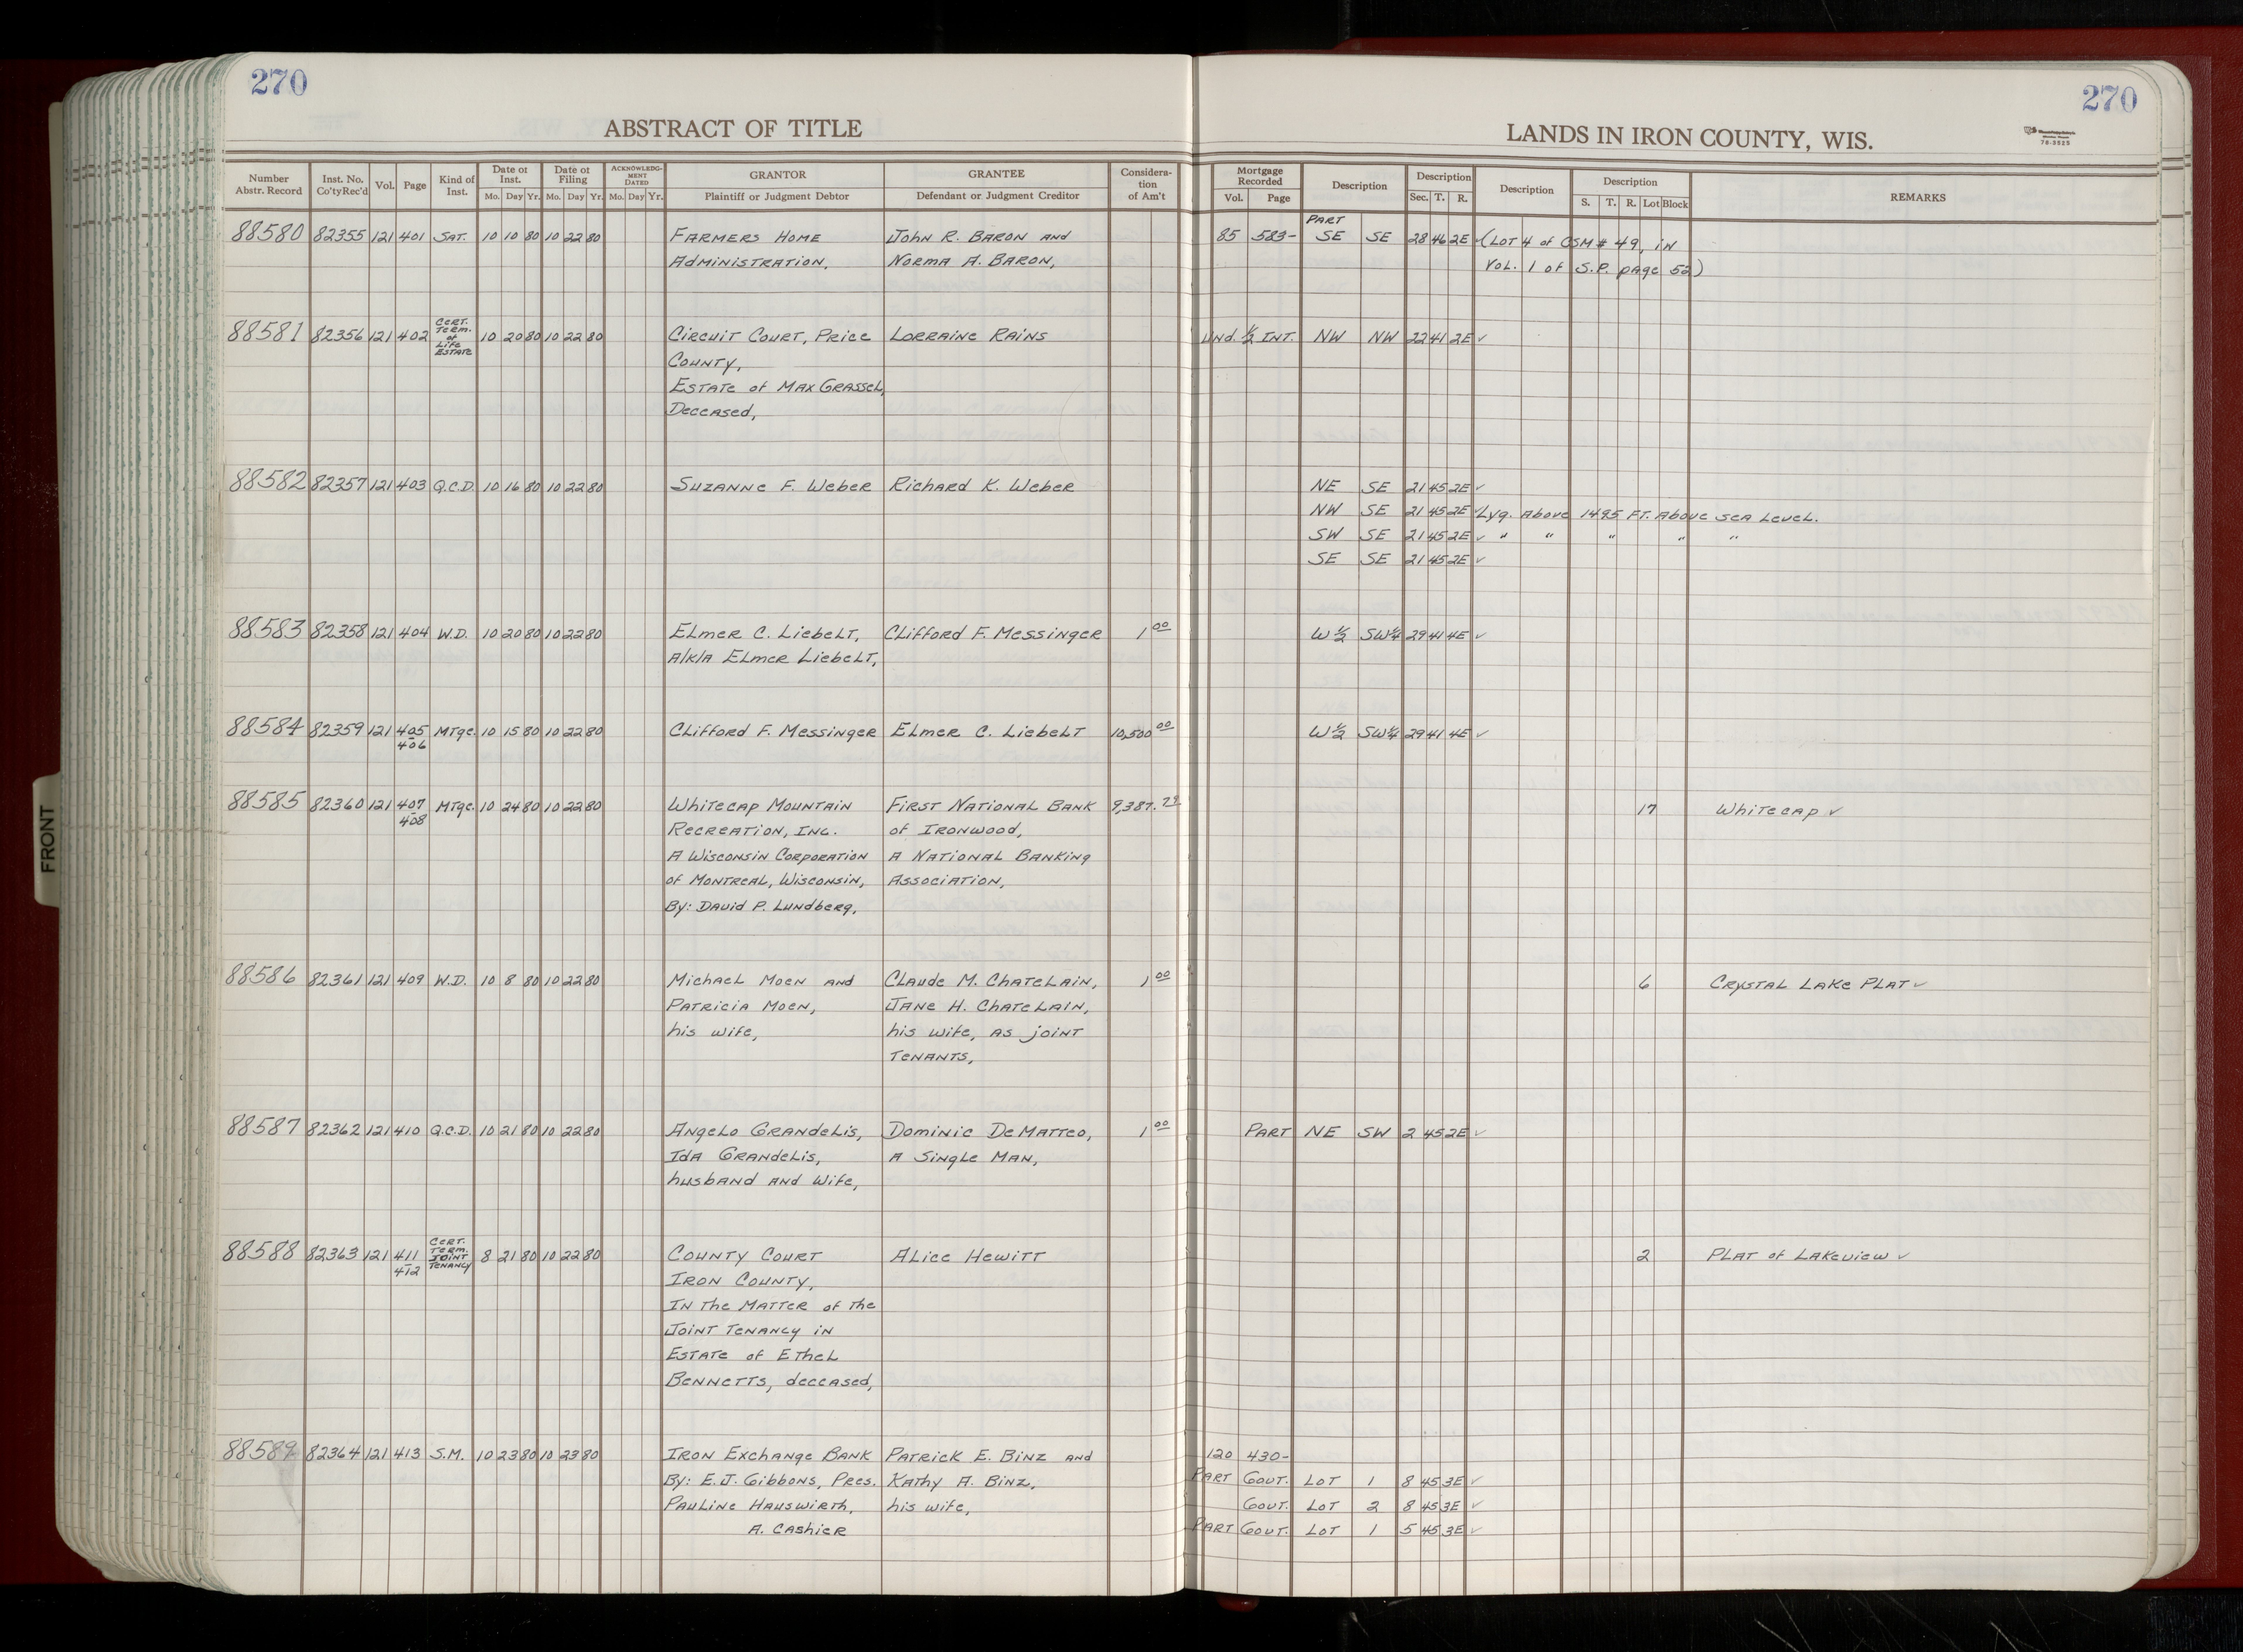 270
270
ABSTRACT OF TITLE
LANDS IN IRON COUNTY, WIS.
76-3525
Number Abstr. Record Inst. No. Co'ty Rec'd Vol. Page Kind of Inst. Date of Inst. Mo. Day Yr. Date of Filing Mo. Day Yr. ACKNOWLEDG-MENT DATED Mo. Day Yr. GRANTOR Plaintiff or Judgment Debtor GRANTEE Defendant or Judgment Creditor Considera-tion of Am't Mortgage Recorded Vol. Page Description Description Sec. T. R. Description Description S. T. R. Lot Block REMARKS
PART
88580 82355 121 401 SAT. 10 10 80 10 22 80 FARMERS HOME John R. BARON AND 85 583- SE SE 28 46 2E ✓ (LOT 4 of CSM # 49, IN
AdMINISTRATION, NORMA A. BARON, VOL. 1 of S.P. page 52)
88581 82356 121 402 CERT. TERM. of Life ESTATE 10 20 80 10 22 80 CIRCUIT COURT, PRICE LORRAINE RAINS Und. 1/2 INT. NW NW 22 41 2E ✓
COUNTY,
ESTATE of MAX GRASSEL,
DECEASED,
88582 82357 121 403 Q.C.D. 10 16 80 10 22 80 SUZANNE F. Weber Richard K. Weber NE SE 21 45 2E ✓
NW SE 21 45 2E ✓ Lyg. Above 1495 FT. Above SEA LEVEL.
SW SE 21 45 2E ✓ " " " " "
SE SE 21 45 2E ✓
88583 82358 121 404 W.D. 10 20 80 10 22 80 ELMER C. LiebeLT, CLifford F. Messinger 1 00 W 1/2 SW 1/4 29 41 4E ✓
A/K/A ELMER LiebeLT,
88584 82359 121 405 MTge. 10 15 80 10 22 80 CLifford F. Messinger ELMER C. LiebeLT 10,500 00 W 1/2 SW 1/4 29 41 4E ✓
406
88585 82360 121 407 MTge. 10 24 80 10 22 80 WhiTecap MOUNTAIN FIRST NATIONAL BANK 9,387.79 17 WhiTecap ✓
408 RECREATION, INC. of IRONWOOD,
A WISCONSIN CORPORATION A NATIONAL BANKing
of MONTREAL, WISCONSIN, ASSOCIATION,
By: DAVid P. LUNdberg,
88586 82361 121 409 W.D. 10 8 80 10 22 80 MichaEL MOEN AND CLAUde M. ChATELAIN, 1 00 6 CRYSTAL LAKE PLAT ✓
PATRICIA MOEN, JANE H. ChATELAIN,
his wife, his wife, AS joINT
TENANTS,
88587 82362 121 410 Q.C.D. 10 21 80 10 22 80 ANgELO GRANdeLis, DOMINIC DeMATTEO, 1 00 PART NE SW 2 45 2E ✓
IdA GRANdeLis, A SingLE MAN,
husbAND AND Wife,
88588 82363 121 411 CERT. TERM. JOINT TENANCY 8 21 80 10 22 80 COUNTY COURT ALICE HEWITT 2 PLAT of LAKEVIEW ✓
412 IRON COUNTY,
IN The MATTER of The
JOINT TENANCY IN
ESTATE of EThEL
BENNETTS, deceased,
88589 82364 121 413 S.M. 10 23 80 10 23 80 IRON EXchange BANK PATRICK E. BINZ AND 120 430-
By: E.J. Gibbons, Pres. KAThy A. BINZ, PART GOVT. LOT 1 8 45 3E ✓
PAULINE HAUSWIRTh, his wife, GOVT. LOT 2 8 45 3E ✓
A. CAShIER PART GOVT. LOT 1 5 45 3E ✓
FRONT